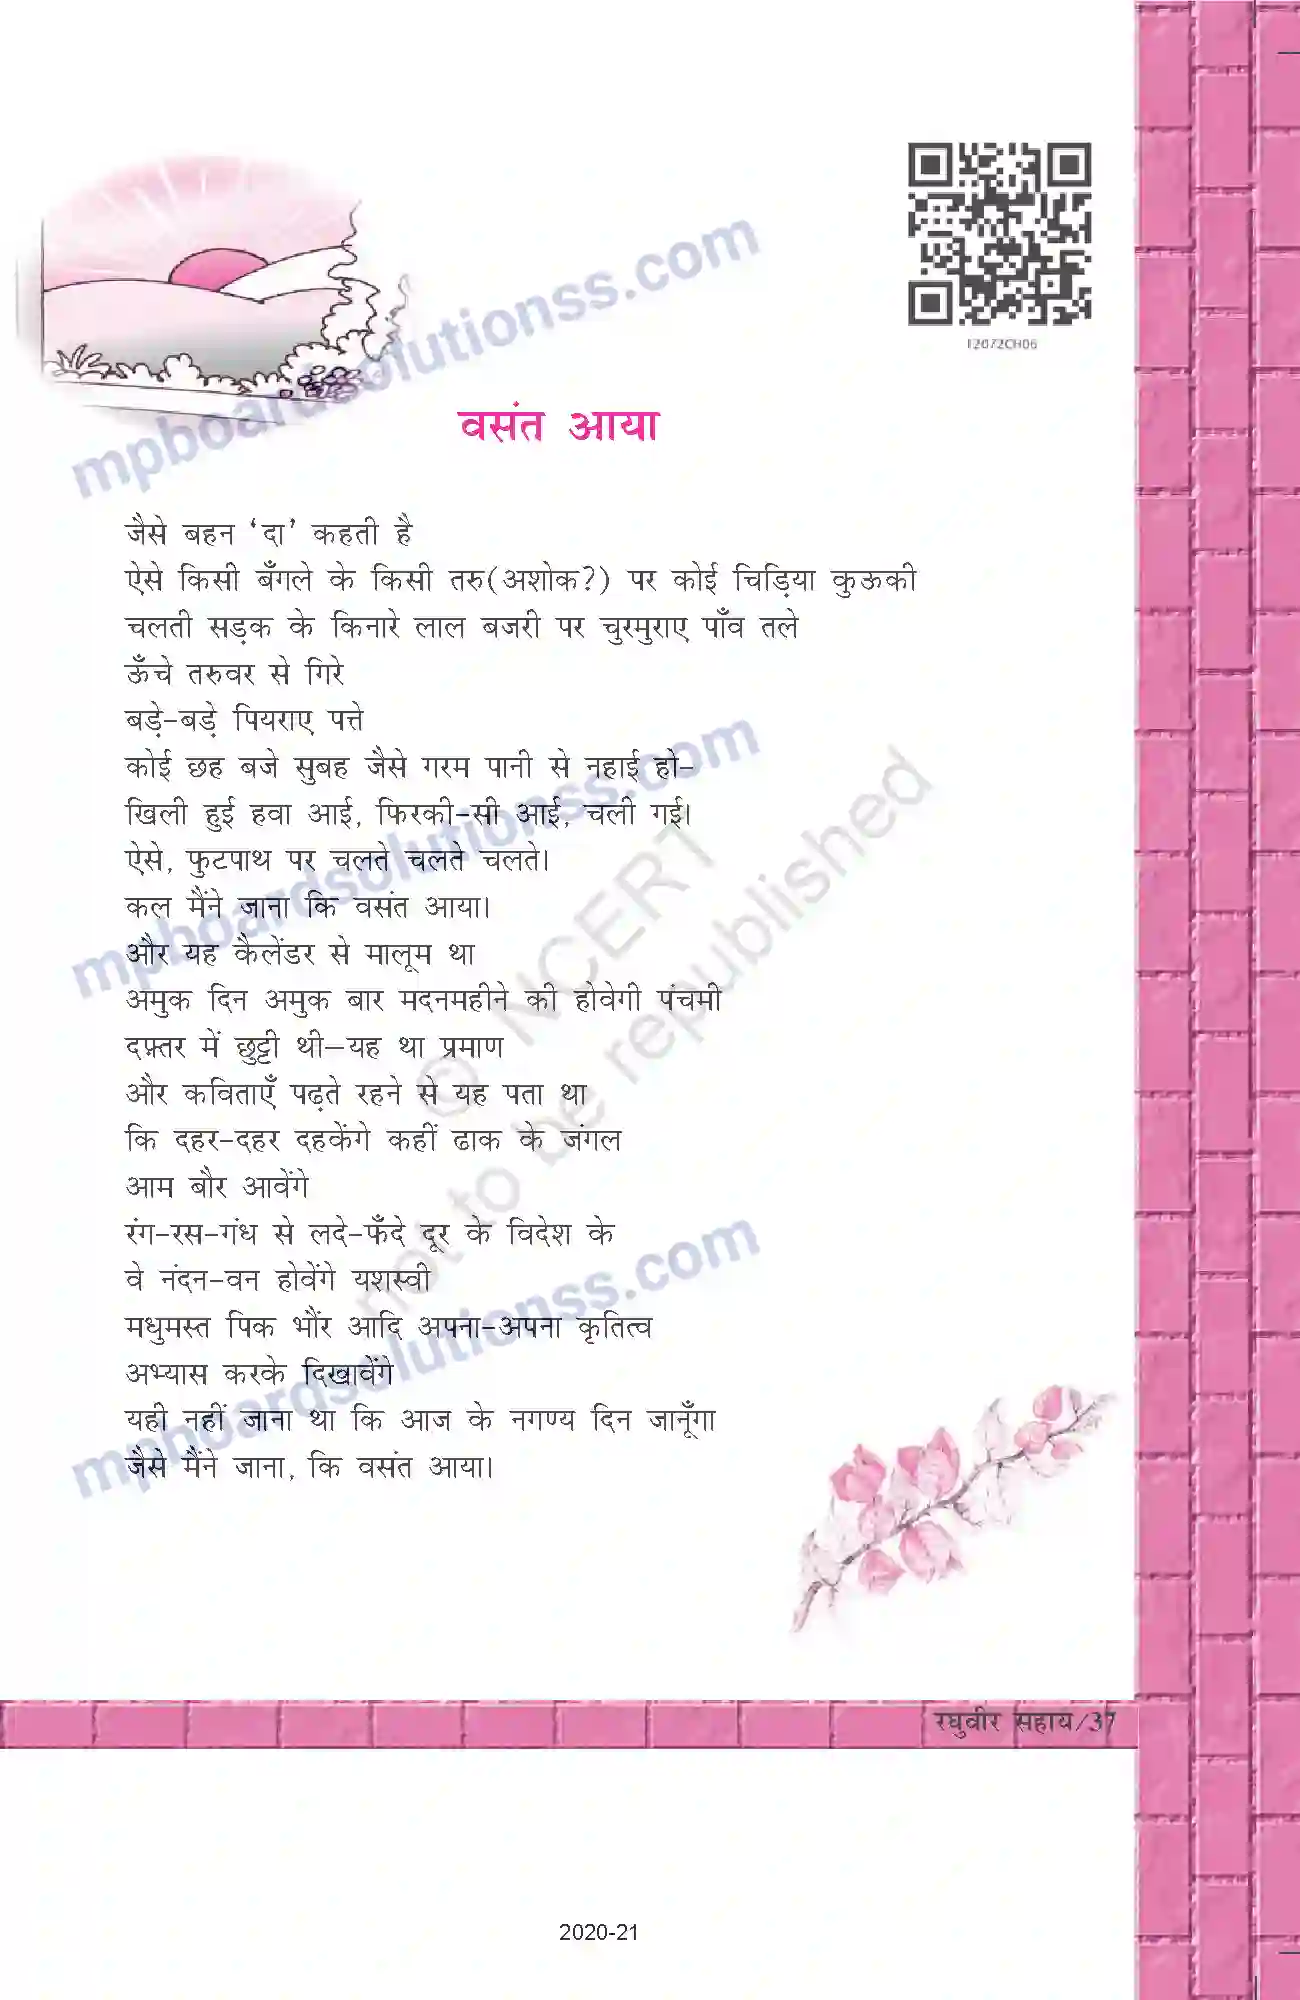 12072CH06
वसंत आया
जैसे बहन ‘दा’ कहती है
ऐसे किसी बँगले के किसी तरु(अशोक?) पर कोई चिड़िया कुऊकी
चलती सड़क के किनारे लाल बजरी पर चुरमुराए पाँव तले
ऊँचे तरुवर से गिरे
बड़े-बड़े पियराए पत्ते
कोई छह बजे सुबह जैसे गरम पानी से नहाई हो-
खिली हुई हवा आई, फिरकी-सी आई, चली गई।
ऐसे, फुटपाथ पर चलते चलते चलते।
कल मैंने जाना कि वसंत आया।
और यह कैलेंडर से मालूम था
अमुक दिन अमुक बार मदनमहीने की होवेगी पंचमी
दफ़्तर में छुट्टी थी—यह था प्रमाण
और कविताएँ पढ़ते रहने से यह पता था
कि दहर-दहर दहकेंगे कहीं ढाक के जंगल
आम बौर आवेंगे
रंग-रस-गंध से लदे-फँदे दूर के विदेश के
वे नंदन-वन होवेंगे यशस्वी
मधुमस्त पिक भौंर आदि अपना-अपना कृतित्व
अभ्यास करके दिखावेंगे
यही नहीं जाना था कि आज के नगण्य दिन जानूँगा
जैसे मैंने जाना, कि वसंत आया।
mpboardsolutionss.com
mpboardsolutionss.com
mpboardsolutionss.com
© NCERT
not to be republished
रघुवीर सहाय/37
2020-21